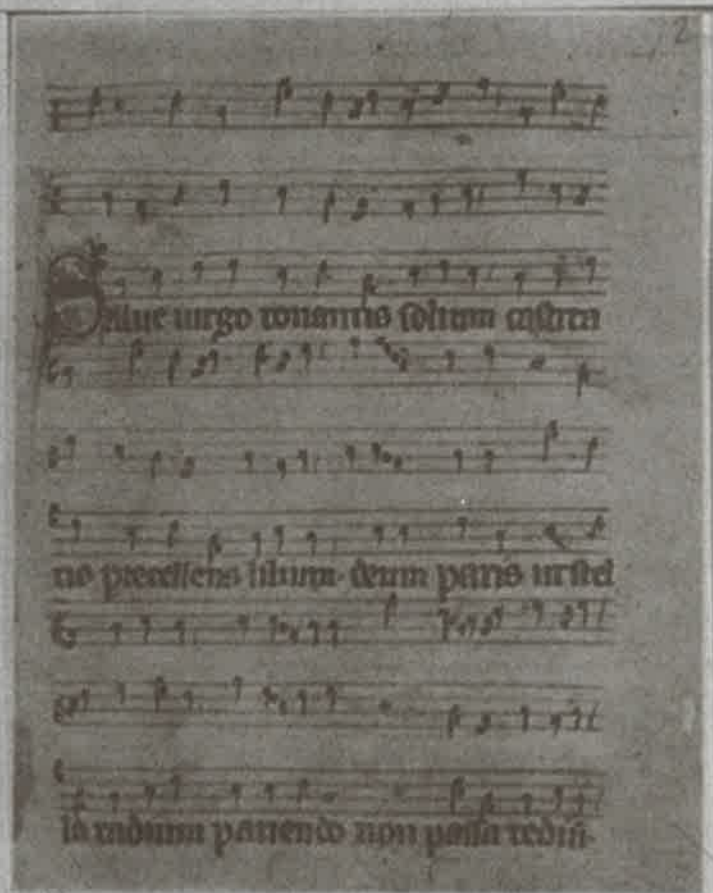 2
Salue uirgo tonantis solium
no precellens lilium deum paris ut stel
la radium pariendo non passa